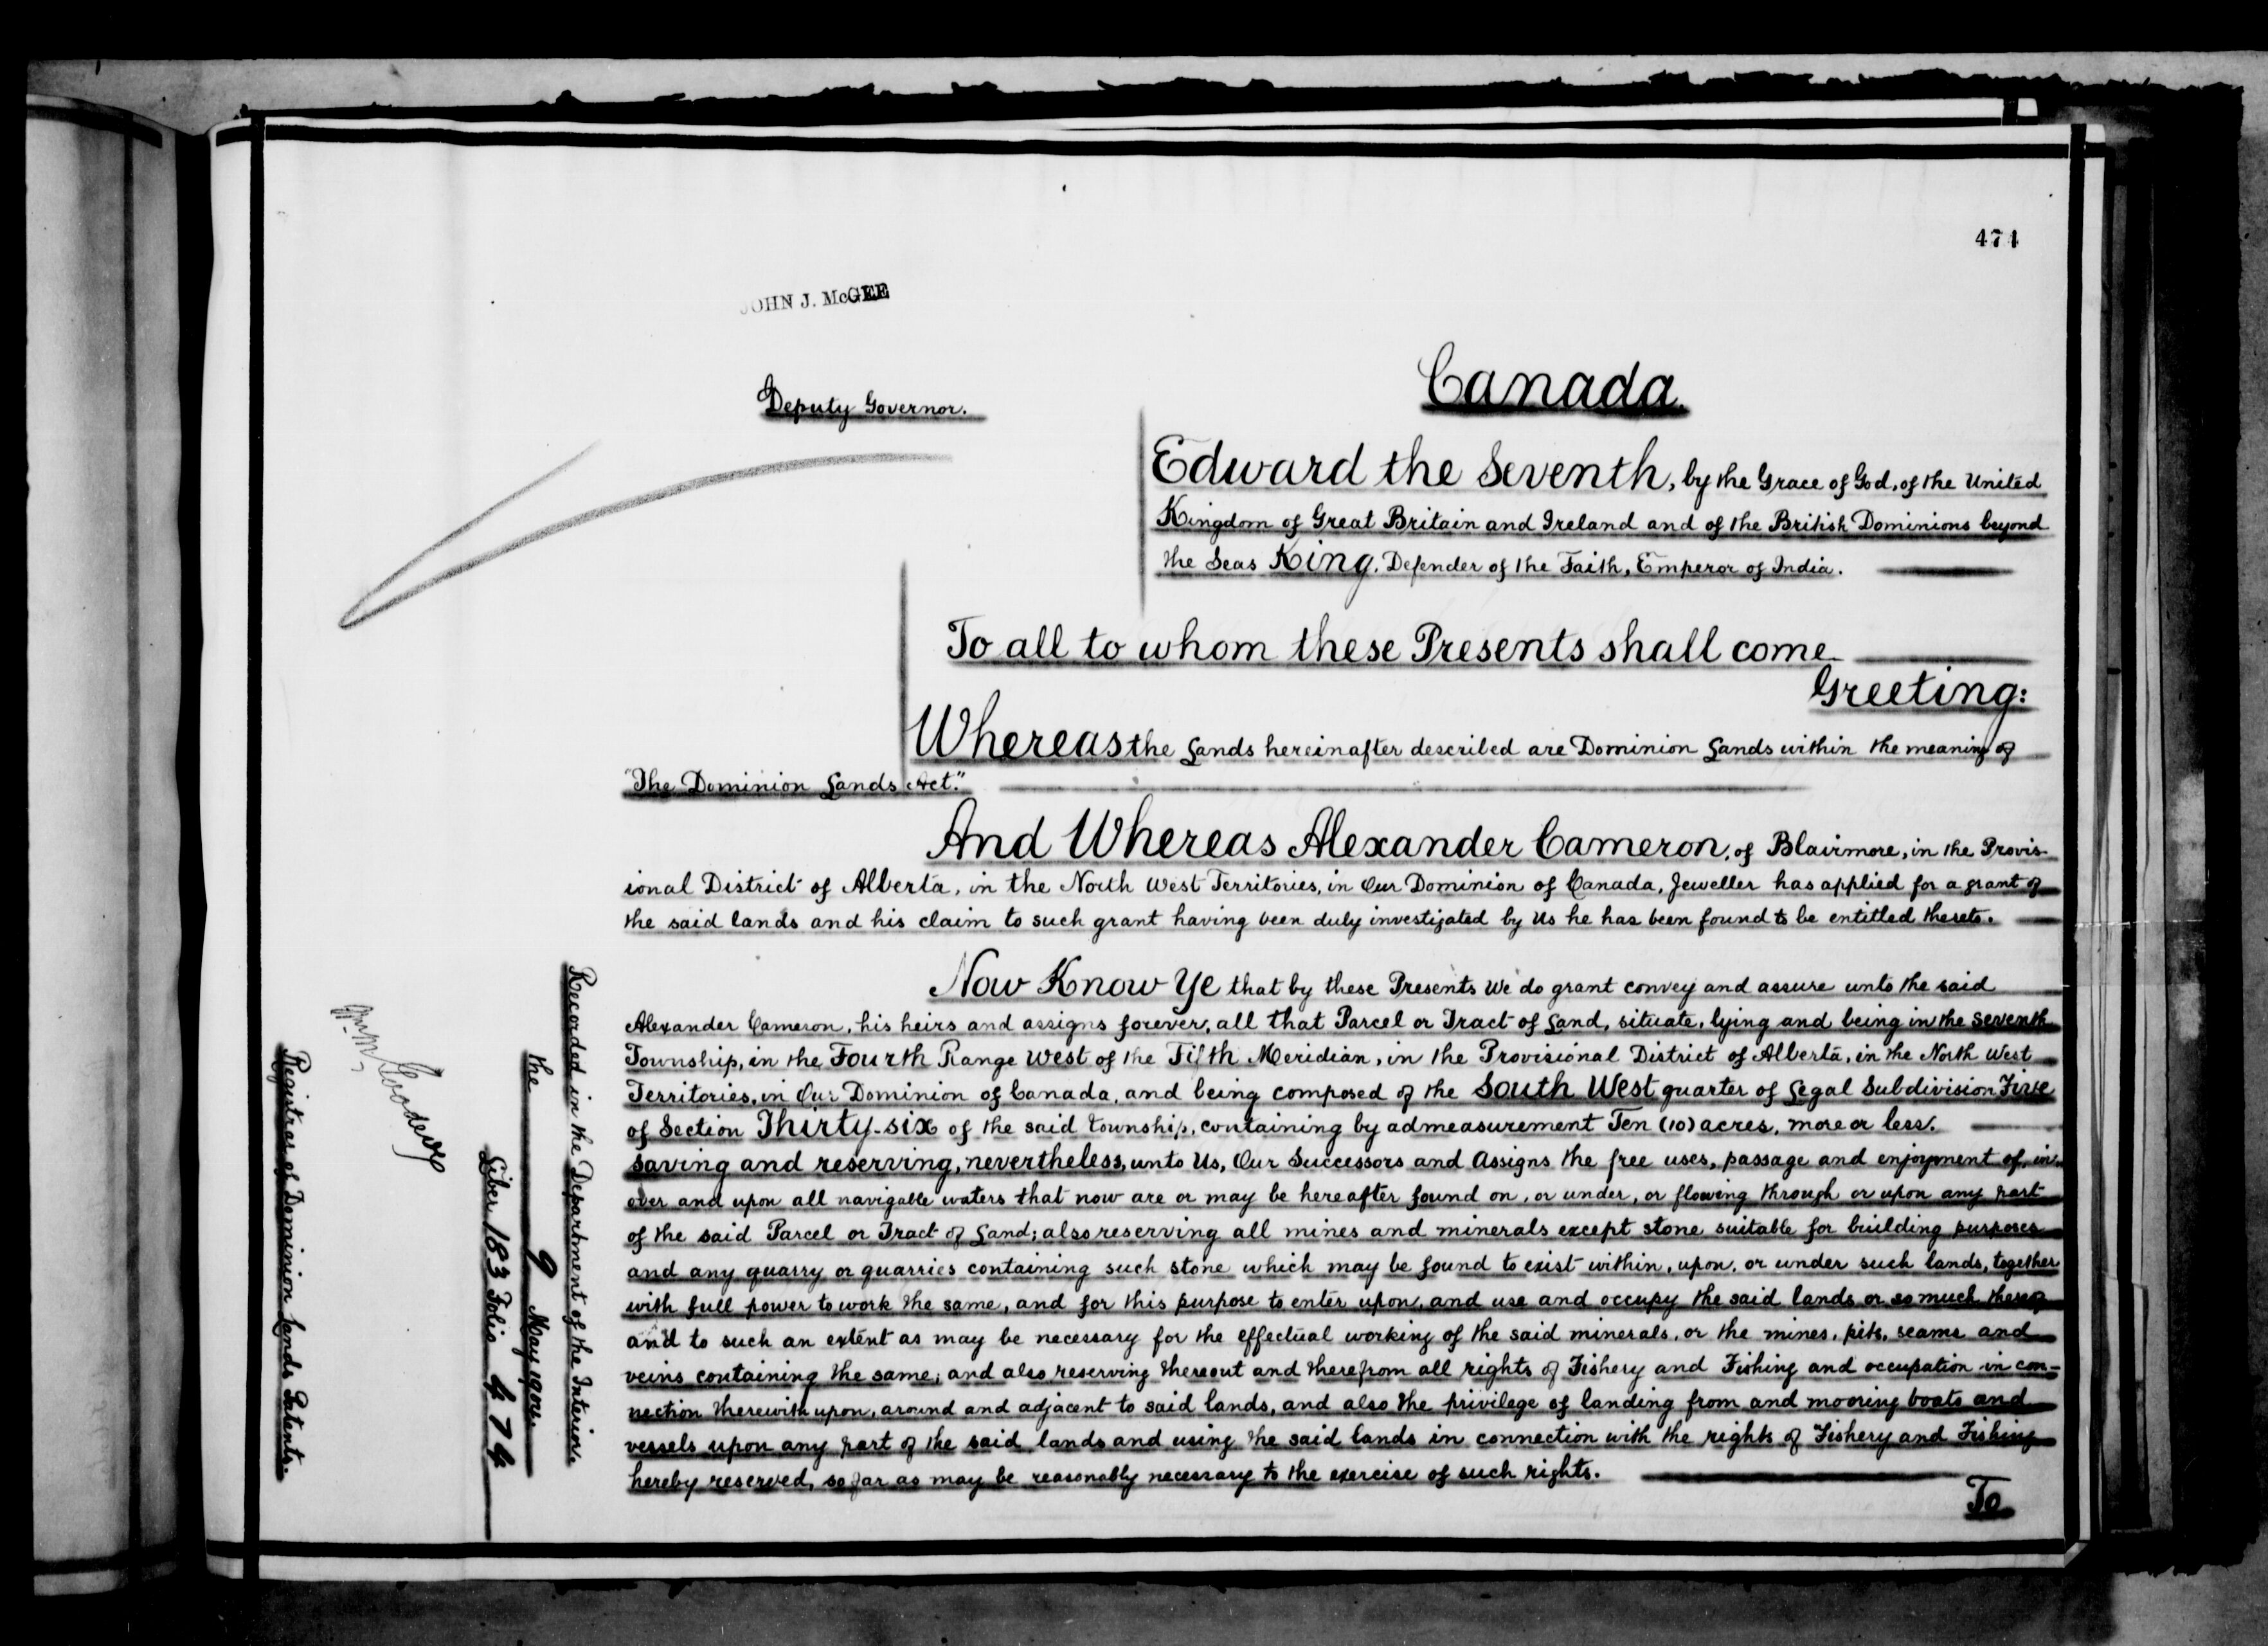 474
JOHN J. McGEE
Deputy Governor.
Canada.
Edward the Seventh, by the Grace of God, of the United
Kingdom of Great Britain and Ireland and of the British Dominions beyond
the Seas King, Defender of the Faith, Emperor of India.
To all to whom these Presents shall come
Greeting:
Whereas the Lands hereinafter described are Dominion Lands within the meaning of
"The Dominion Lands Act."
And Whereas Alexander Cameron, of Blairmore, in the Provis-
ional District of Alberta, in the North West Territories, in Our Dominion of Canada, Jeweller has applied for a grant of
the said lands and his claim to such grant having been duly investigated by Us he has been found to be entitled thereto.
Now Know Ye that by these Presents We do grant convey and assure unto the said
Alexander Cameron, his heirs and assigns forever, all that Parcel or Tract of Land, situate, lying and being in the Seventh
Township, in the Fourth Range West of the Fifth Meridian, in the Provisional District of Alberta, in the North West
Territories, in Our Dominion of Canada, and being composed of the South West quarter of Legal Subdivision Five
of Section Thirty-six of the said Township, containing by admeasurement Ten (10) acres, more or less.
saving and reserving, nevertheless, unto Us, Our Successors and Assigns the free uses, passage and enjoyment of, in,
over and upon all navigable waters that now are or may be hereafter found on, or under, or flowing through or upon any part
of the said Parcel or Tract of Land; also reserving all mines and minerals except stone suitable for building purposes
and any quarry or quarries containing such stone which may be found to exist within, upon, or under such lands, together
with full power to work the same, and for this purpose to enter upon, and use and occupy the said lands or so much thereof
and to such an extent as may be necessary for the effectual working of the said minerals, or the mines, pits, seams and
veins containing the same; and also reserving thereout and therefrom all rights of Fishery and Fishing and occupation in con-
nection therewith upon, around and adjacent to said lands, and also the privilege of landing from and mooring boats and
vessels upon any part of the said lands and using the said lands in connection with the rights of Fishery and Fishing
hereby reserved, so far as may be reasonably necessary to the exercise of such rights.
To
Recorded in the Department of the Interior.
the 9 May 190
Liber 183 Folio 474
Wm M Goodeve
Registrar of Dominion Lands Patents.